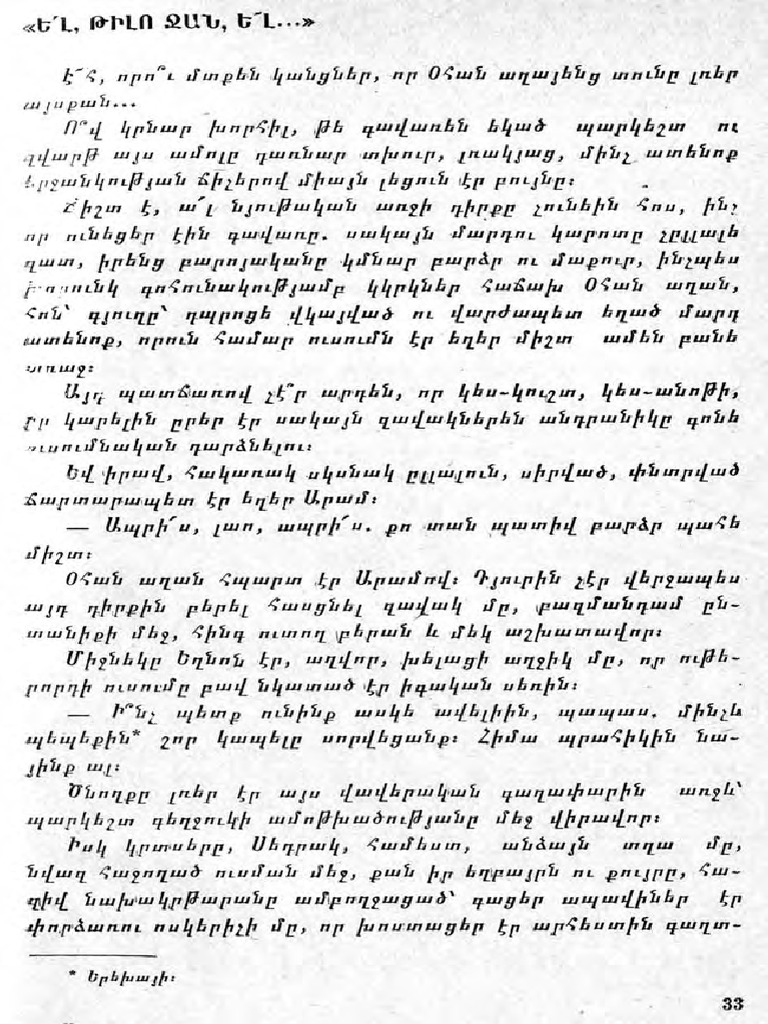 «Ե՛Լ, ԹԻԼՈ ՋԱՆ, Ե՜Լ...»
Է՜հ, որո՞ւ մտքեն կանցներ, որ Օհան աղայենց տունը լռեր
այսքան...
Ո՞վ կրնար խորհիլ, թե գավառեն եկած պարկեշտ ու
զվարթ այս ամոլը դառնար տխուր, լռակյաց, մինչ ատենոք
երջանկության ճիչերով միայն լեցուն էր բույնը։
Ճիշտ է, ա՛լ նյութական առջի դիրքը չունեին հոս, ինչ
որ ունեցեր էին գավառը. սակայն մարդու կարոտը չըլլալե
զատ, իրենց բարոյականը կմնար բարձր ու մաքուր, ինչպես
գոհունակությամբ կկրկներ հաճախ Օհան աղան,
հոն՝ գյուղը՝ դպրոցե վկայված ու վարժապետ եղած մարդ
ատենոք, որուն համար ուսումն էր եղեր միշտ ամեն բանե
առաջ։
Այդ պատճառով չէ՞ր արդեն, որ կես-կուշտ, կես-անոթի,
իր կարելին ըրեր էր սակայն զավակներեն անդրանիկը գոնե
ուսումնական դարձնելու։
Եվ իրավ, հակառակ սկսնակ ըլլալուն, սիրված, փնտրված
ճարտարապետ էր եղեր Արամ։
— Ապրի՛ս, լաո, ապրի՛ս. քո տան պատիվ բարձր պահե
միշտ։
Օհան աղան հպարտ էր Արամով։ Դյուրին չէր վերջապես
այդ դիրքին բերել հասցնել զավակ մը, բազմանդամ ըն-
տանիքի մեջ, հինգ ուտող բերան և մեկ աշխատավոր։
Միջնեկը Եղնոն էր, աղվոր, խելացի աղջիկ մը, որ ութե-
րորդի ուսումը բավ նկատած էր իգական սեռին։
— Ի՞նչ պետք ունինք ասկե ավելիին, պապաս. մինչև
պեպեքին* շոր կապելը սորվեցանք։ Հիմա պրահիկին նա-
յինք ալ։
Ծնողքը լռեր էր այս վավերական գաղափարին առջև՝
պարկեշտ գեղջուկի ամոթխածությանը մեջ վիրավոր։
Իսկ կրտսերը, Սեդրակ, համեստ, անձայն տղա մը,
նվազ հաջողած ուսման մեջ, քան իր եղբայրն ու քույրը, հա-
զիվ նախակրթարանը ամբողջացած՝ գացեր ապավիներ էր
փորձառու ոսկերիչի մը, որ խոստացեր էր արհեստին գաղտ-
* Երեխայի։
33